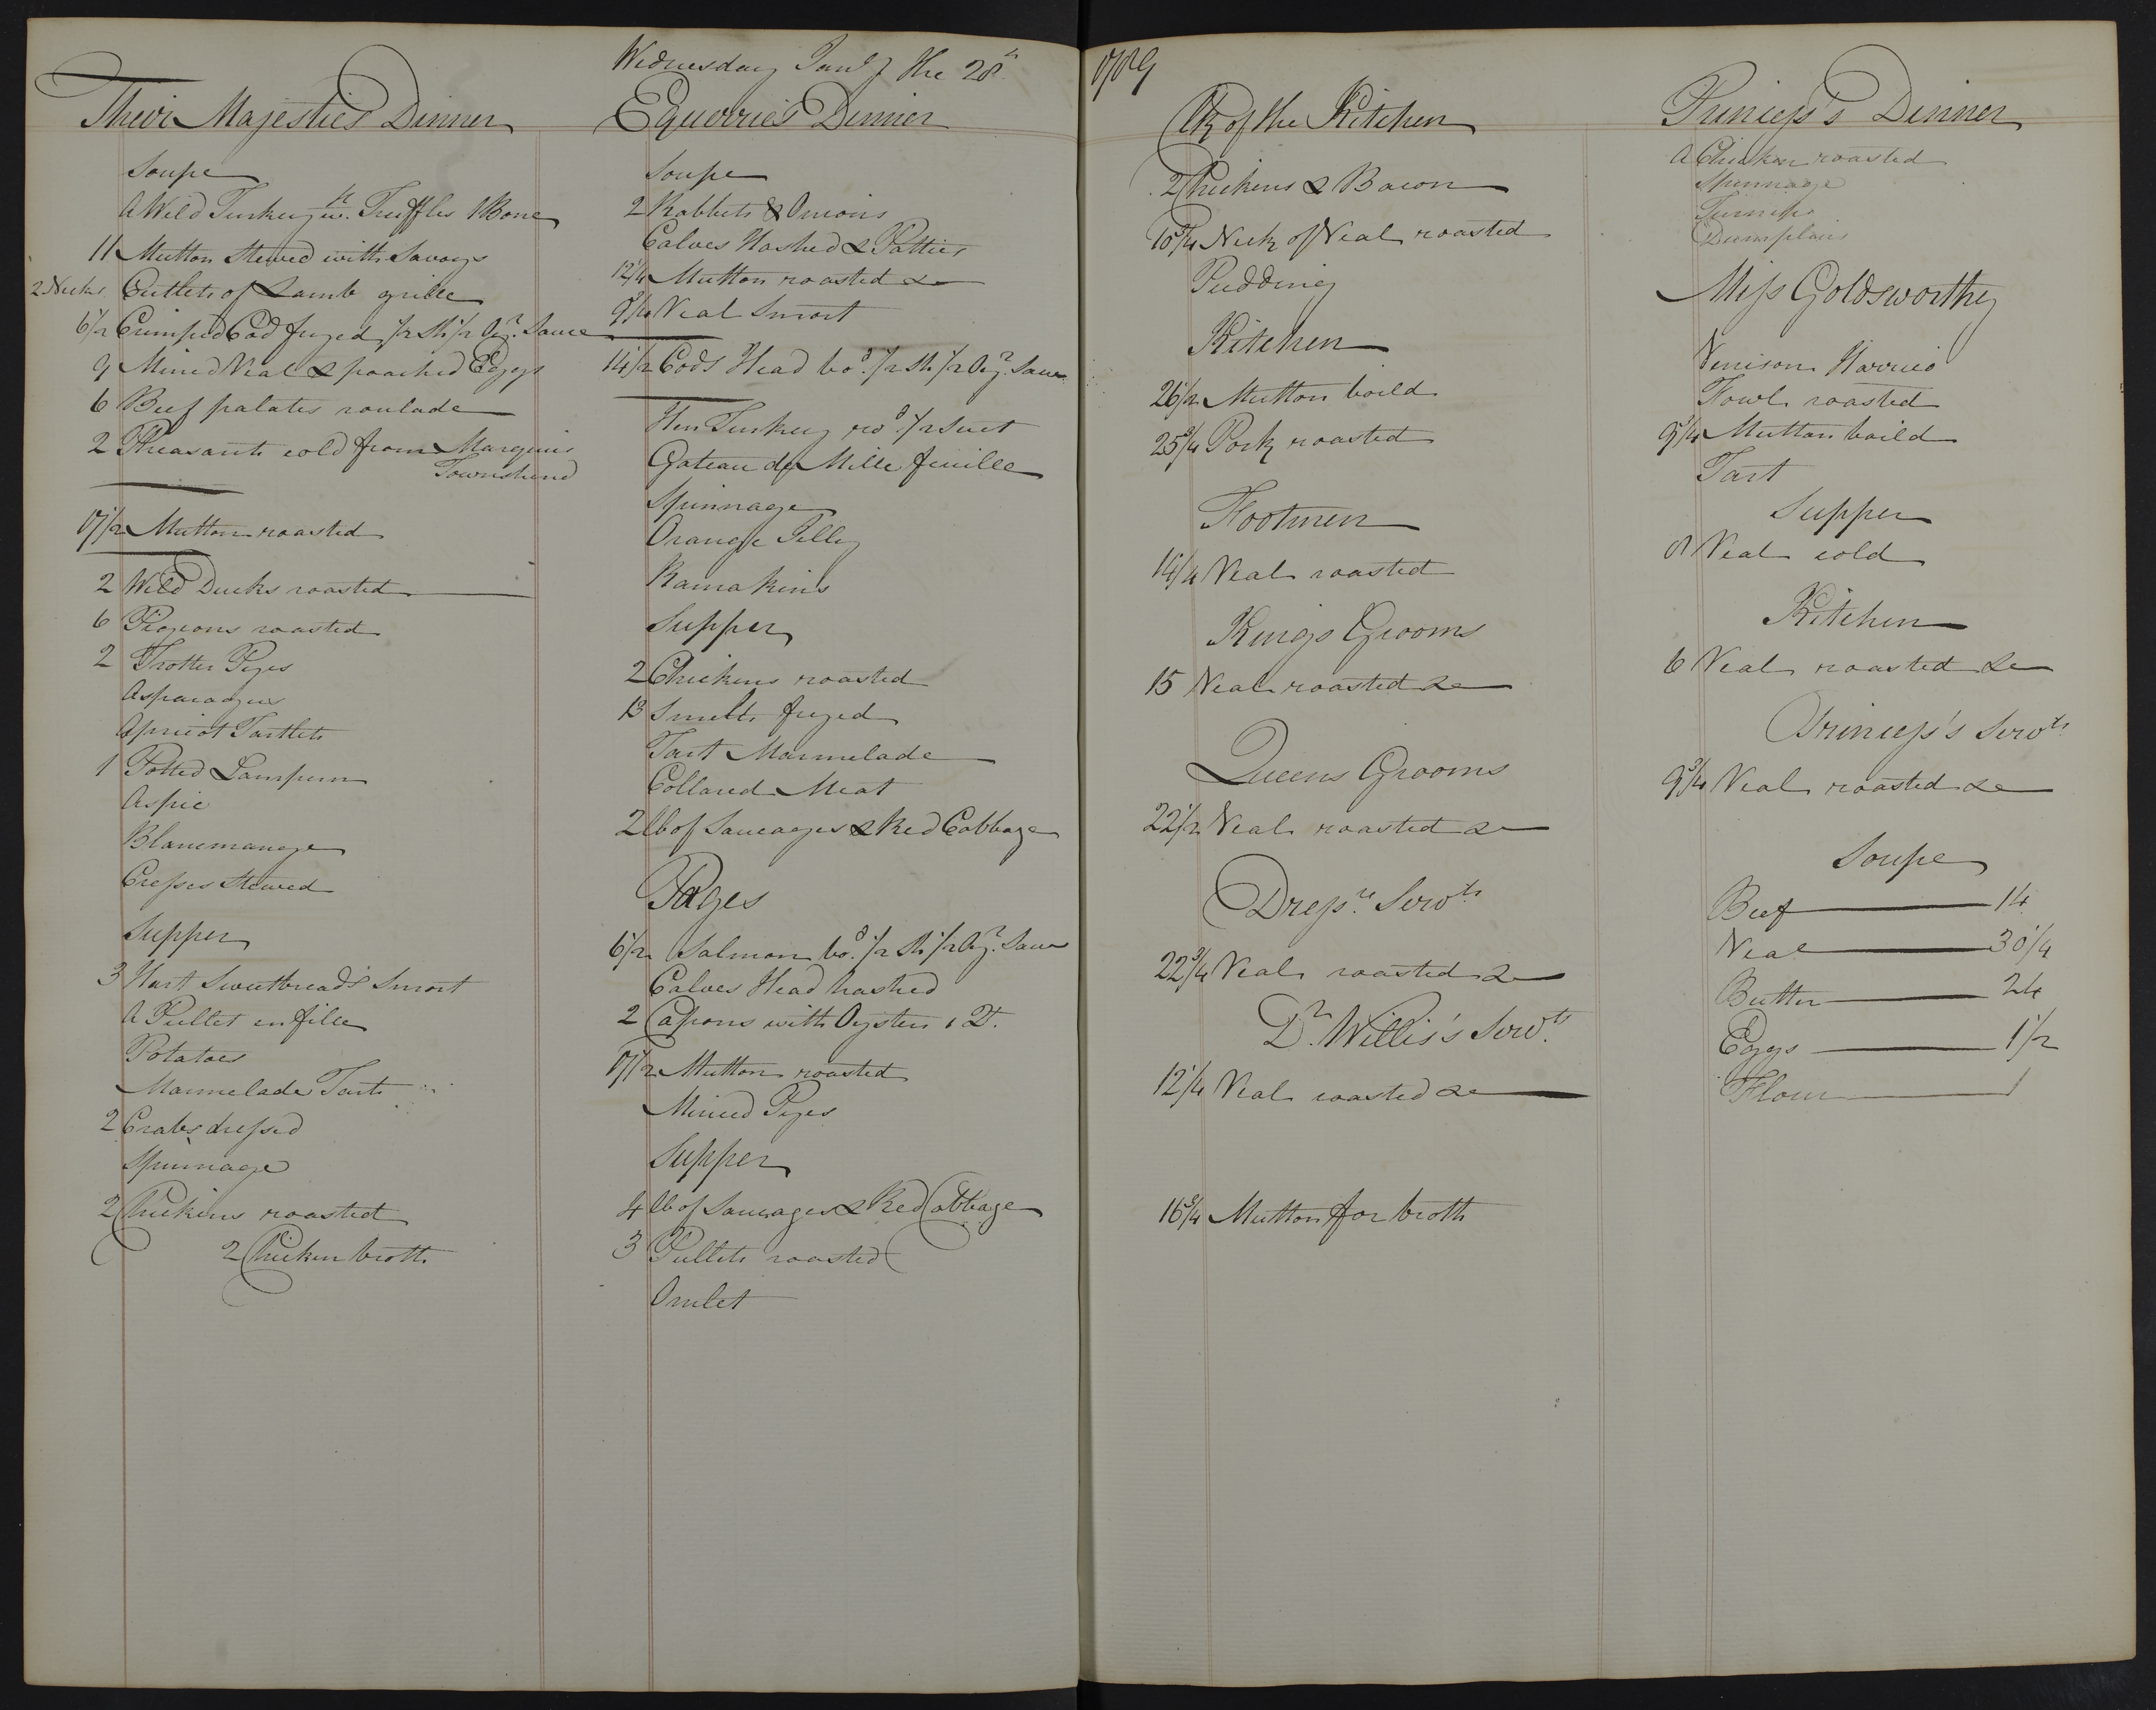 Wednesday Janry the 28th 1789
Their Majesties Dinner
Soupe
A Wild Turkey wth. Truffles 1 Bone
11 Mutton Stewed with Savoys
2 Necks Cutlets of Lamb grille
6 1/2 Crimped Cod fryed 1/2 Sh 1/2 Oyr. Sauce
9 Mined Veal & poached Eggs
6 Beef palates roulade
2 Pheasants cold from Marquis
Townshend
17 1/2 Mutton roasted
2 Wild Ducks roasted
6 Pigeons roasted
2 Trotter Pyes
Asparagus
Apricot Tartlets
1 Potted Lampurn
Aspic
Blancmange
Cresses Stewed
Supper
3 Hart Sweetbreads Smort
A Pullet en fille
Potatoes
Marmelade Tart
2 Crabs dressed
Spinnage
2 Chickens roasted
2 Chicken broth
Equerries Dinner
Soupe
2 Rabbits & Onions
Calves Hashed & Patties
12 1/4 Mutton roasted &c
9 3/4 Veal Smort
14 1/2 Cods Head bod. 1/2 Sh 1/2 Oyr. Sauce
Hen Turkey rod. 1/2 Suet
Gateau de Mille feuille
Spinnage
Orange Jelly
Ramakins
Supper
2 Chickens roasted
13 Smelts fryed
Tart Marmelade
Collared Meat
2 lb of Saucages & Red Cabbage
Pages
6 1/2 Salmon bod. 1/2 Sh 1/2 Oyr. Sauce
Calves Head hashed
2 Capons with Oysters 1 Qt.
17 1/2 Mutton roasted
Minced Pyes
Supper
4 lb of Saucages & Red Cabbage
3 Pullets roasted
Omlet
Clk of the Kitchen
2 Chickens & Bacon
10 3/4 Neck of Veal roasted
Pudding
Kitchen
26 1/2 Mutton boild
25 3/4 Pork roasted
Footmen
14 1/4 Veal roasted
Kings Grooms
15 Veal roasted &c
Queens Grooms
22 1/2 Veal roasted &c
Dressrs. Servts
22 3/4 Veal roasted &c
Dr. Willis's Servts.
12 1/4 Veal roasted &c
16 3/4 Mutton for broth
Princess's Dinner
A Chicken roasted
Spinnage
Turnips
Dumplins
Miss Goldsworthy
Venison Harrico
Fowl roasted
9 3/4 Mutton boild
Tart
Supper
8 Veal cold
Kitchen
6 Veal roasted &c
Princess's Servts.
9 3/4 Veal roasted &c
Soupe
Beef 14
Veal 30 1/4
Butter 24
Eggs 1 1/2
Flour 1